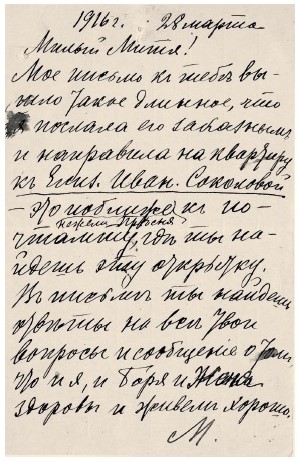 1916 г. 28 марта
Милый Митя!
Мое письмо къ тебѣ вы-
шло такое длинное, что
я послала его заказнымъ
и направила на квартиру
къ Елиз. Иван. Соколовой
— это поближе къ по-
нежели Прѣсня
чтамту, гдѣ ты на-
йдешь эту открытку.
Въ письмѣ ты найдешь
отвѣты на всѣ твои
вопросы и сообщение о томъ,
что и я, и Боря и Женя
здоровы и живемъ хорошо.
М.